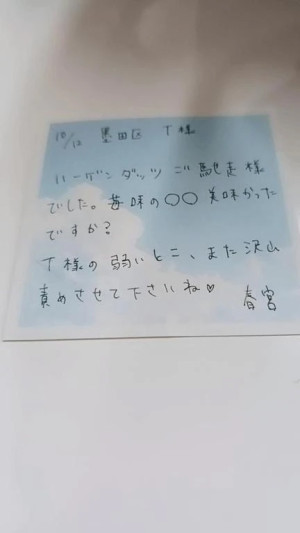 10/12 墨田区 T様
ハーゲンダッツ ご馳走様
でした。苺味の〇〇 美味かった
ですか?
T様の弱いとこ、また沢山
責めさせて下さいね♥
春宮